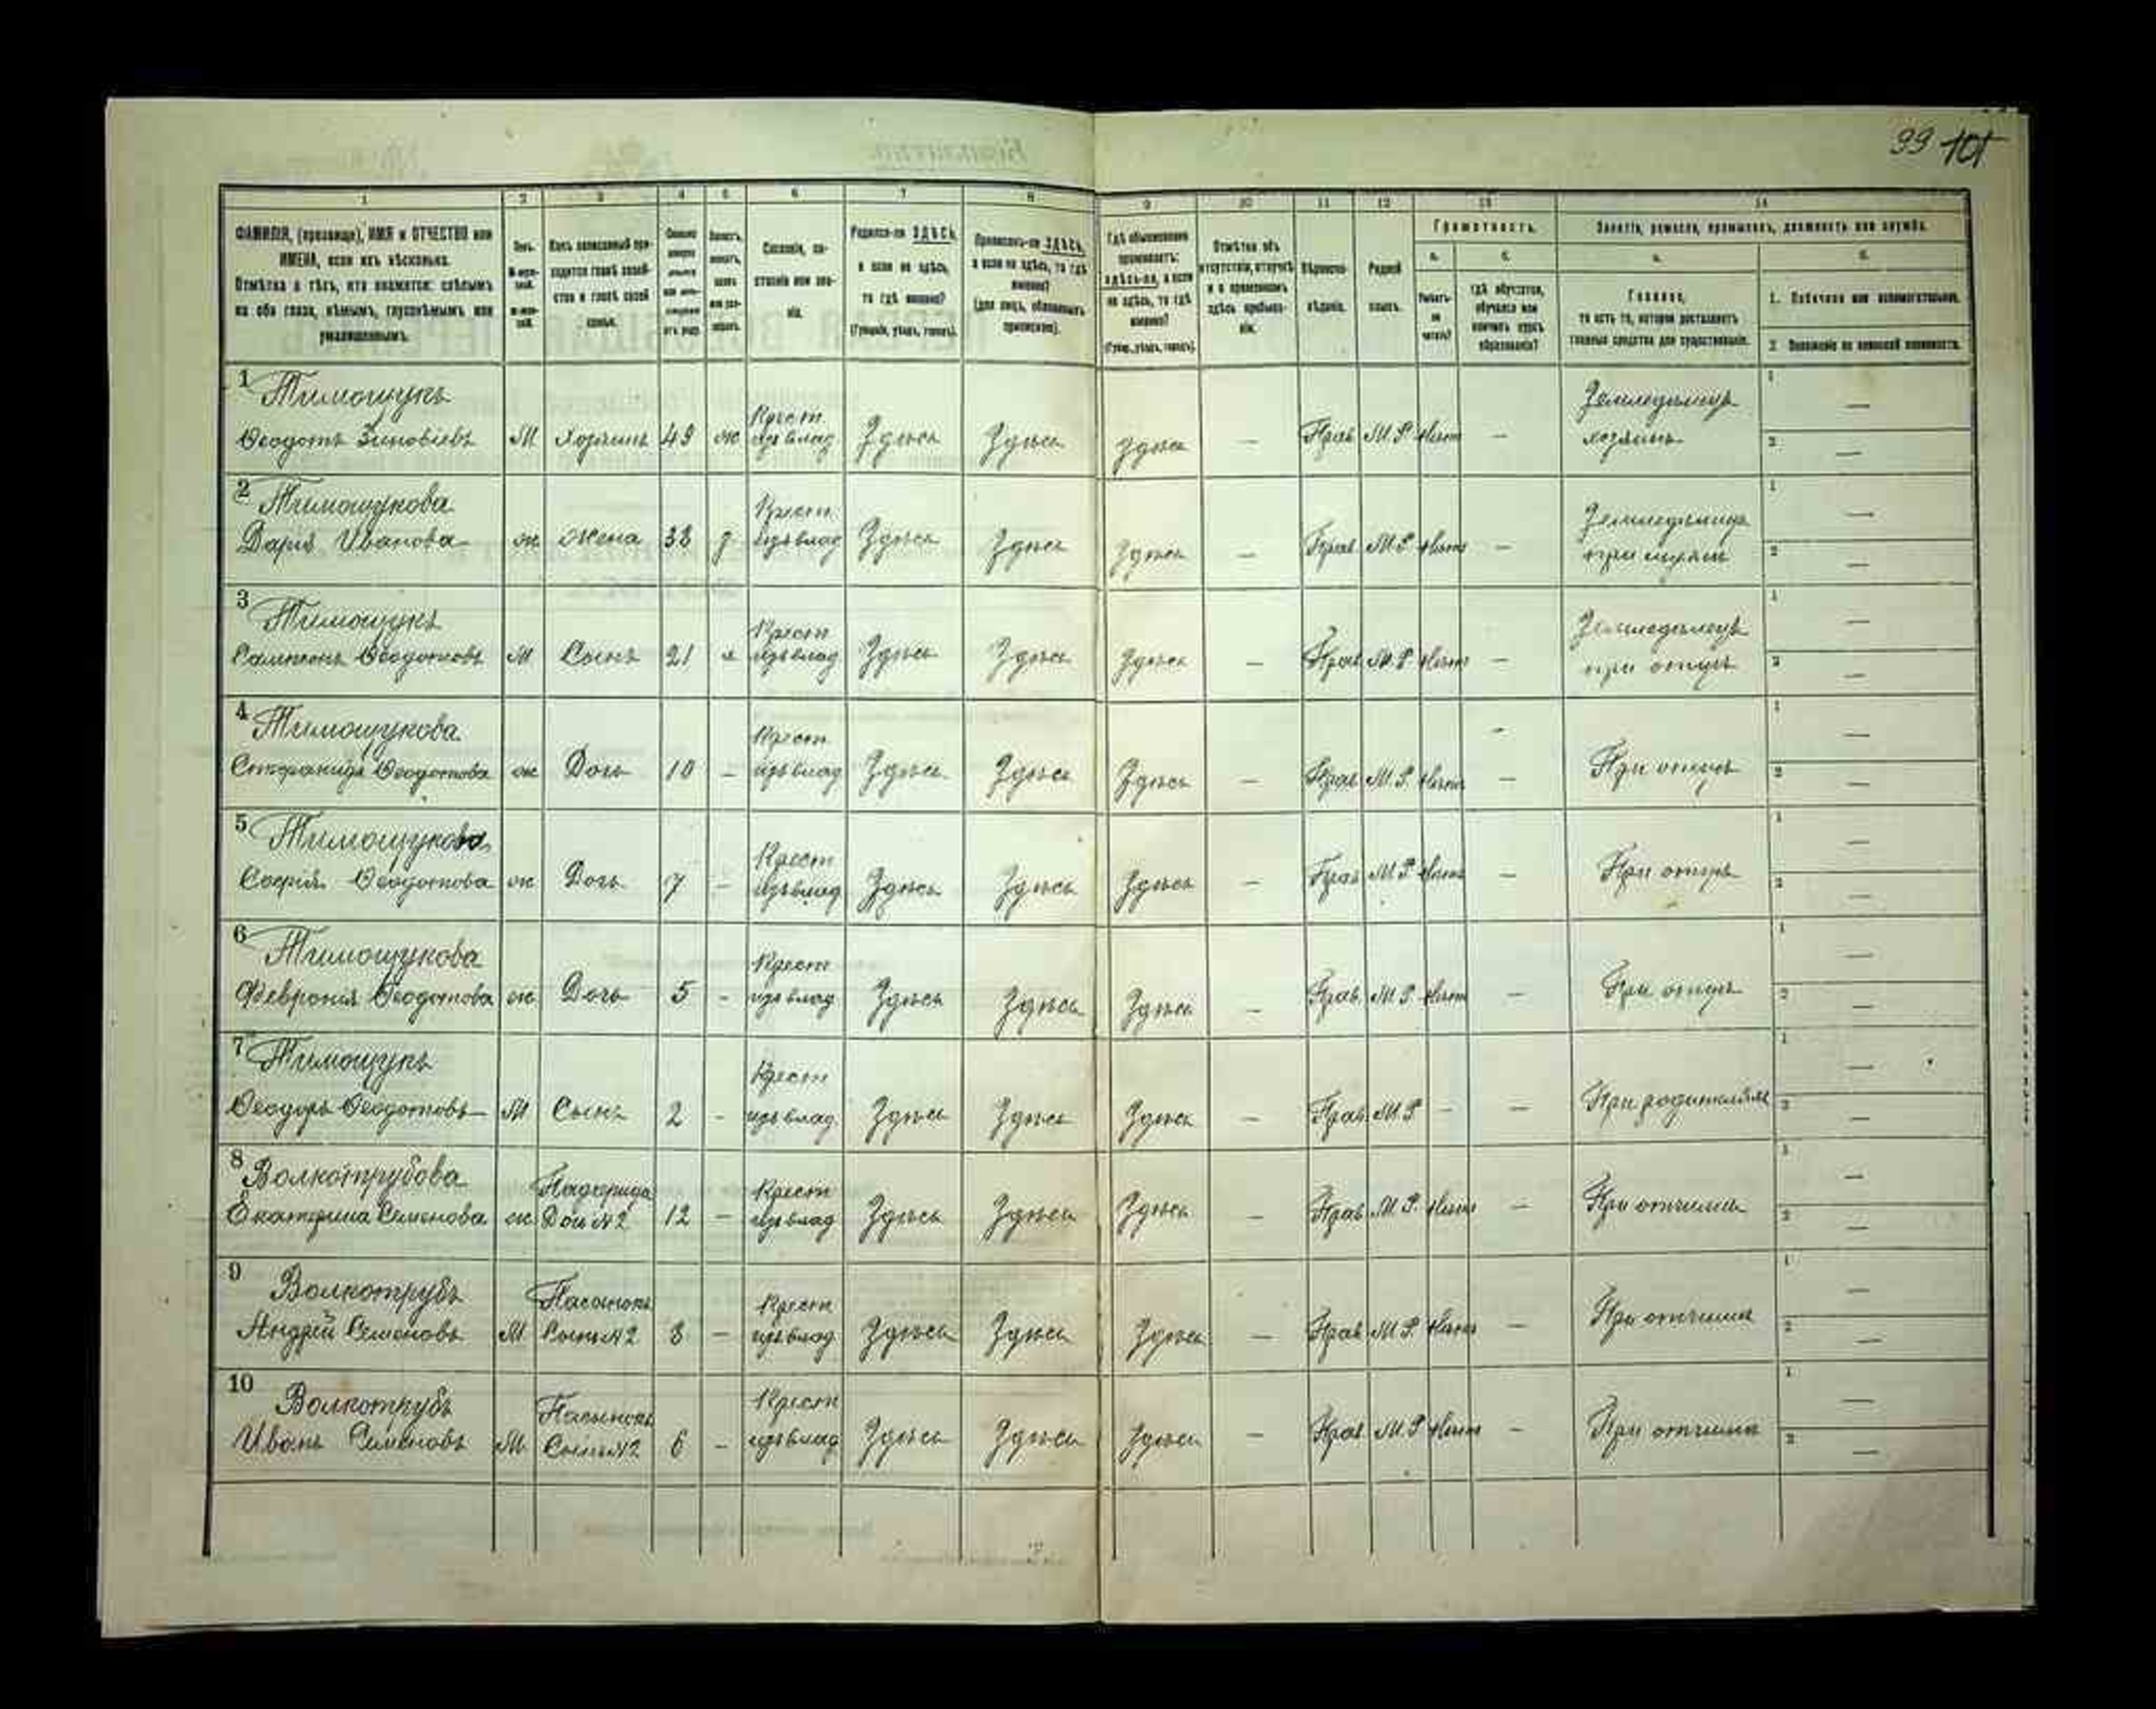 99 101
1 2 3 4 5 6 7 8 9 10 11 12 13 14
ФАМИЛІЯ, (прозвище), ИМЯ и ОТЧЕСТВО или
ИМЕНА, если ихъ нѣсколько.
Отмѣтка о тѣхъ, кто окажется: слѣпымъ
на оба глаза, нѣмымъ, глухонѣмымъ или
умалишеннымъ.
Родился-ли ЗДѢСЬ,
а если не здѣсь,
то гдѣ именно?
(Губернія, уѣздъ, городъ).
Приписанъ-ли ЗДѢСЬ,
а если не здѣсь, то гдѣ
именно?
(для лицъ, обязанныхъ
припискою).
Гдѣ обыкновенно
проживаетъ:
здѣсь-ли, а если
не здѣсь, то гдѣ
именно?
(Губ., уѣздъ, городъ).
Отмѣтка объ
отсутствіи, отлучкѣ
и о временномъ
здѣсь пребыва-
ніи.
Вѣроиспо-
вѣданіе.
Родной
языкъ.
Грамотность.
а. б.
Умѣетъ-
ли
читать?
гдѣ обучается,
обучался или
кончилъ курсъ
образованія?
Занятіе, ремесло, промыселъ, должность или служба.
а. б.
Главное,
то есть то, которое доставляетъ
главныя средства для существованія.
1. Побочное или вспомогательное.
2. Положеніе по воинской повинности.
1 Тимощукъ Крест. Земледѣлецъ 1 —
Ѳеодотъ Зиновіевъ М Хозяинъ 49 ж изъ влад. Здѣсь Здѣсь Здѣсь — Прав. М.Р. Нѣтъ — хозяинъ 2 —
2 Тимощукова Крест. 1 —
Дарія Иванова ж Жена 38 з изъ влад Здѣсь Здѣсь Здѣсь — Прав. М.Р. Нѣтъ — при мужѣ 2 —
3 Тимощукъ Крест Земледѣлецъ 1 —
Сампсонъ Ѳеодотовъ М Сынъ 21 х изъ влад Здѣсь Здѣсь Здѣсь — Прав М.Р. Нѣтъ — при отцѣ 2 —
4 Тимощукова Крест 1 —
Стефанида Ѳеодотова ж Дочь 10 — изъ влад Здѣсь Здѣсь Здѣсь — Прав М.Р. Нѣтъ — При отцѣ 2 —
5 Тимощукова Крест 1 —
Софія Ѳеодотова ж Дочь 7 — изъ влад Здѣсь Здѣсь Здѣсь — Прав М.Р Нѣтъ — При отцѣ 2 —
6 Тимощукова Крест 1 —
Февронія Ѳеодотова ж Дочь 5 — изъ влад Здѣсь Здѣсь Здѣсь — Прав. М.Р. Нѣтъ — При отцѣ 2 —
7 Тимощукъ Крест 1 —
Ѳеодоръ Ѳеодотовъ М Сынъ 2 — изъ влад. Здѣсь Здѣсь Здѣсь — Прав М.Р — — При родителяхъ 2 —
8 Волкотрубова Падчерица Крест 1 —
Екатерина Семенова ж Дочь №2 12 — изъ влад Здѣсь Здѣсь Здѣсь — Прав М.Р. Нѣтъ — При отчимѣ 2 —
9 Волкотрубъ Пасынокъ Крест 1 —
Андрей Семеновъ М Сынъ №2 8 — изъ влад Здѣсь Здѣсь Здѣсь — Прав М.Р. Нѣтъ — При отчимѣ 2 —
10 Волкотрубъ Пасынокъ Крест 1 —
Иванъ Семеновъ М Сынъ №2 6 — изъ влад Здѣсь Здѣсь Здѣсь — Прав М.Р Нѣтъ — При отчимѣ 2 —